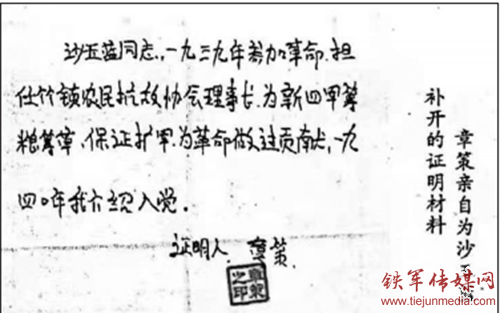 沙玉同志,一九三九年参加革命,担
任竹镇农民抗敌协会理事长,为新四军筹
粮筹草,保证扩军,为革命做过贡献,一九
四〇年我介绍入党.
证明人 章策.
章策之印
章策亲自为沙
补开的证明材料
铁军传媒网
www.tiejunmedia.com